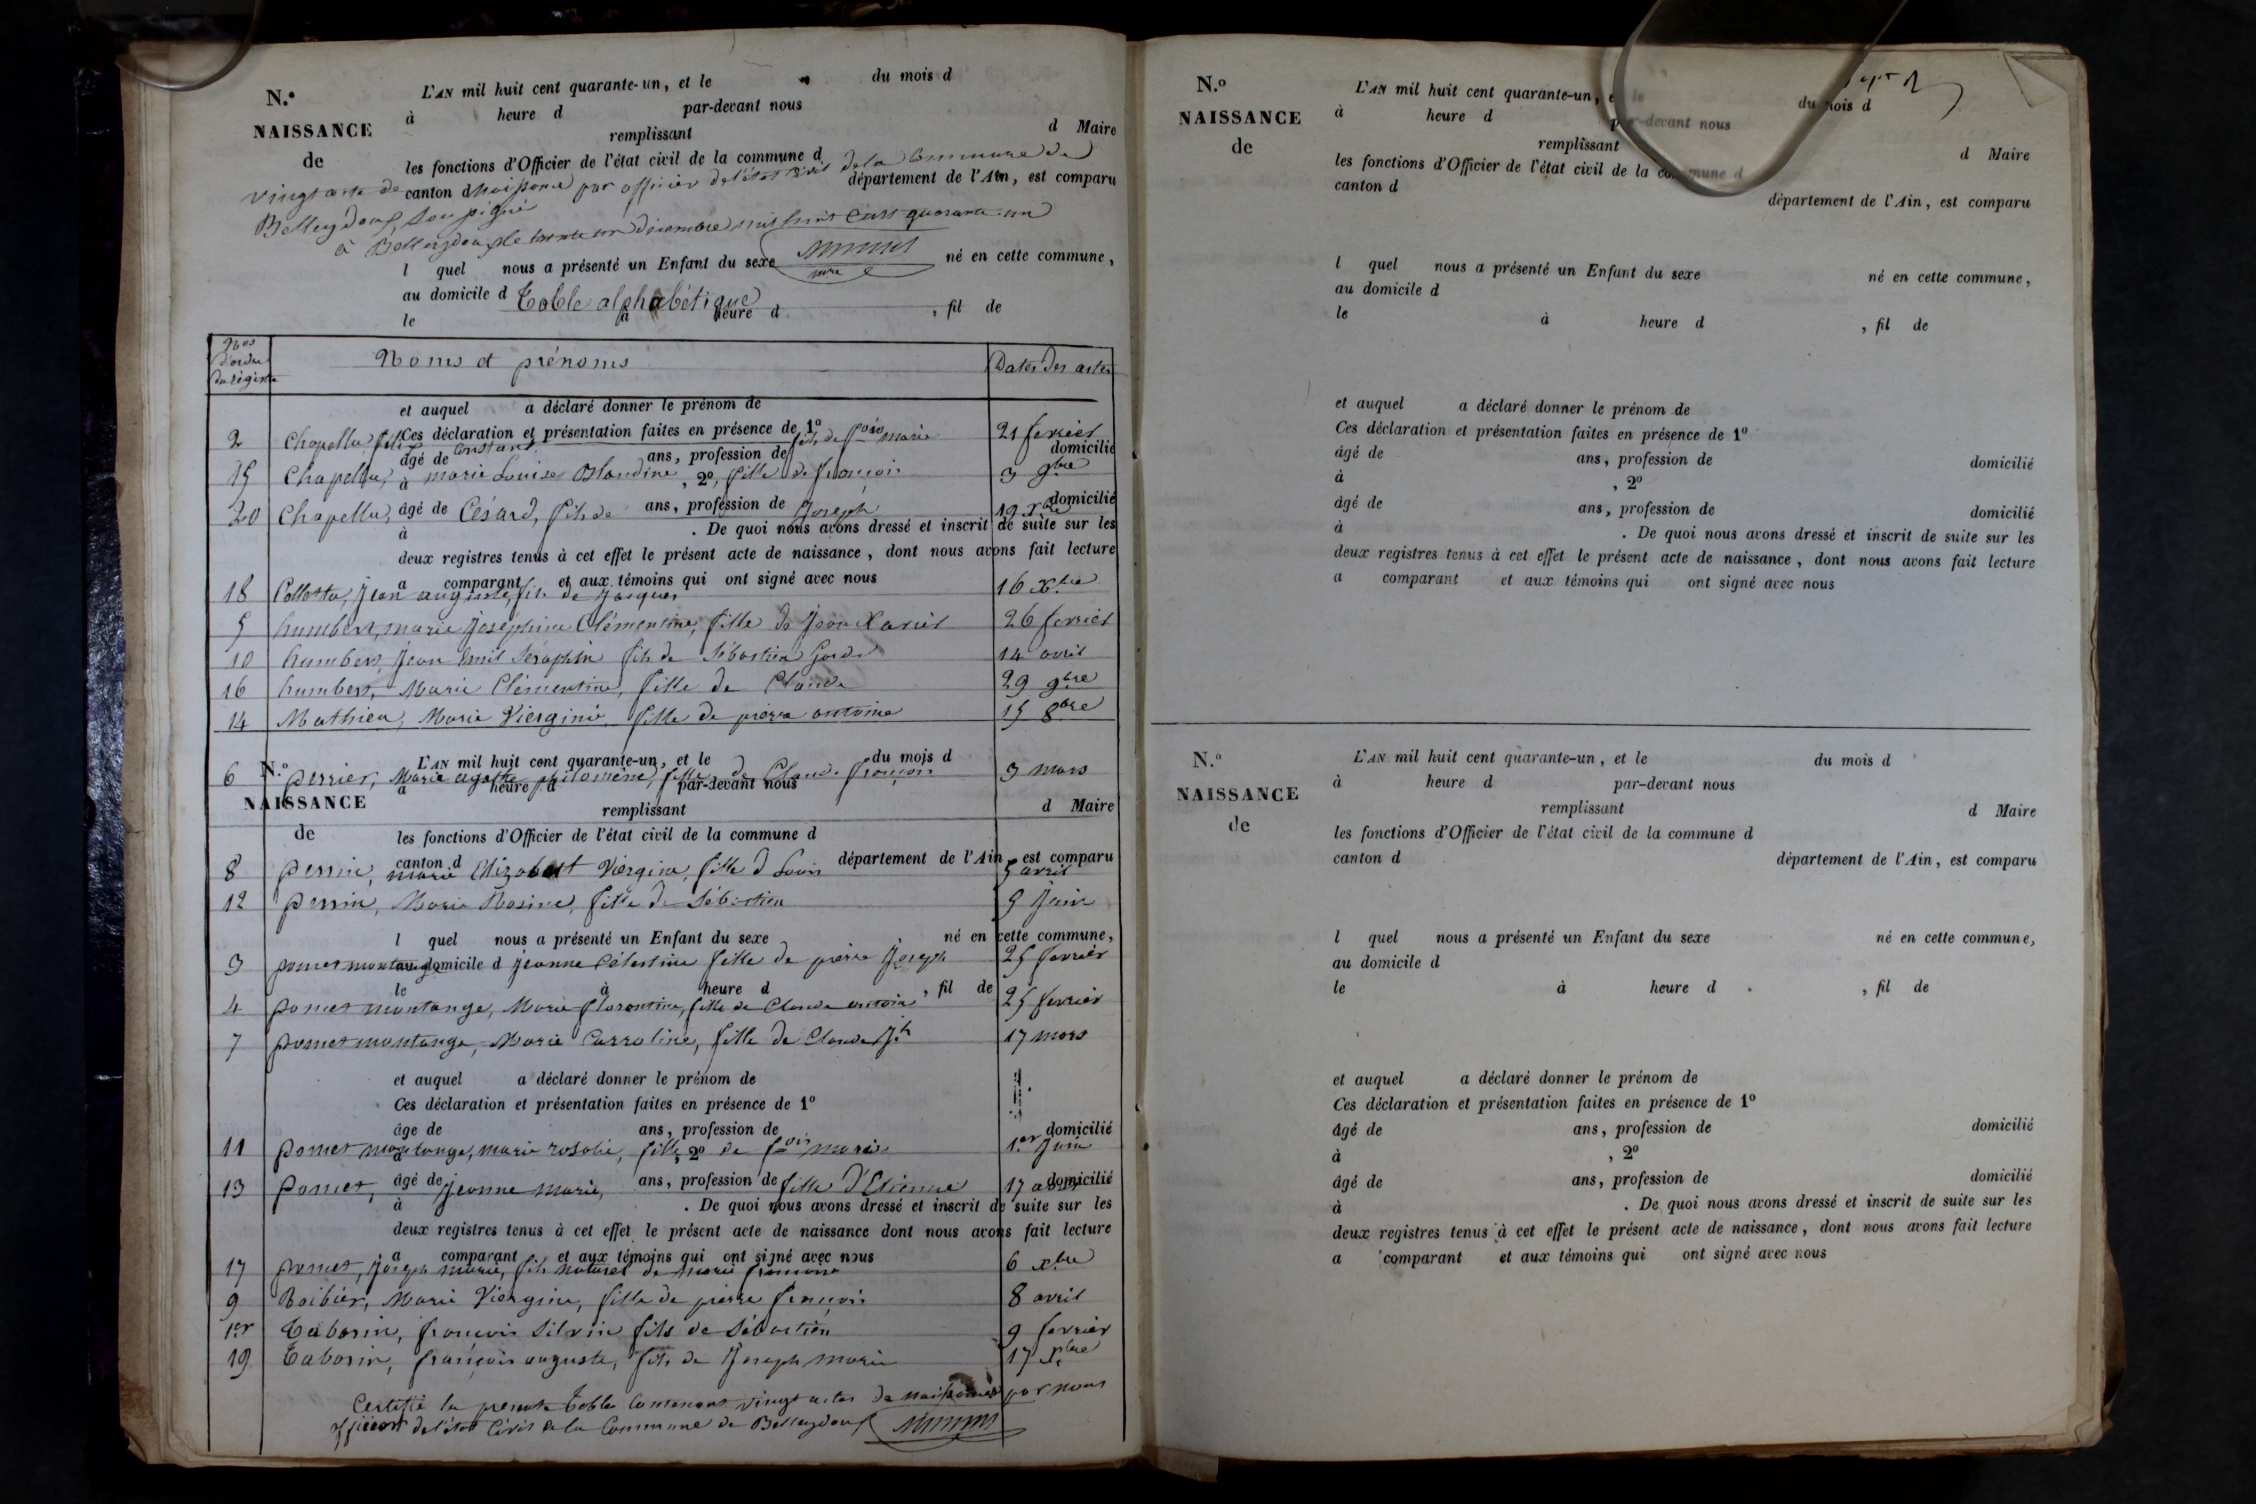 N.o
NAISSANCE
de
L'AN mil huit cent quarante-un, et le du mois d
à heure d par-devant nous
remplissant d Maire
les fonctions d'Officier de l'état civil de la commune d
canton d département de l'Ain, est comparu
vingt acte de naissance par officier de l'état civil de la Commune de
Belleydoux, Soussigné
à Belleydoux le trente un décembre mil huit cent quarante un
l quel nous a présenté un Enfant du sexe né en cette commune,
au domicile d
Table alphabétique
le à heure d , fil de
Nos d'ordre du registre Noms et prénoms Dates des actes
et auquel a déclaré donner le prénom de
Ces déclaration et présentation faites en présence de 1o
2 Chapellu, félix Constant, fils de fois marie 21 fevrier
âgé de ans, profession de domicilié
15 Chapellu, marie Louise Blandine, fille de françois 3 9bre
à , 2o
âgé de ans, profession de domicilié
20 Chapellu, Césard, fils de Joseph 19 xbre
à . De quoi nous avons dressé et inscrit de suite sur les
deux registres tenus à cet effet le présent acte de naissance, dont nous avons fait lecture
a comparant et aux témoins qui ont signé avec nous
18 Collette, Jean auguste, fils de Jacques 16 xbre
5 humbert, marie Joséphine Clémentine, fille de Jean Xavier 26 fevrier
10 humbert, Jean Emil Seraphin fils de Sébastien 14 avril
16 humbert, Marie Clémentine, fille de Claude 29 9bre
14 Mathieu, Marie Vierginie, fille de pierre antoine 15 8bre
N.o
L'AN mil huit cent quarante-un, et le du mois d
6 perrier, Marie agathe philomène, fille de Claude françois 3 mars
à heure d par-devant nous
NAISSANCE
remplissant d Maire
de
les fonctions d'Officier de l'état civil de la commune d
canton d département de l'Ain, est comparu
8 perrin, marie Elizabeet Viergine, fille d Louis 5 avril
12 perrin, Marie Rosine, fille de Sébastien 9 Juin
l quel nous a présenté un Enfant du sexe né en cette commune,
au domicile d
3 poncet montange Jeanne Célestine fille de pierre Joseph 25 fevrier
le à heure d , fil de
4 poncet montange, Marie florentine, fille de Claude antoine 25 fevrier
7 poncet montange, Marie Carroline, fille de Claude Jh 17 mars
et auquel a déclaré donner le prénom de
Ces déclaration et présentation faites en présence de 1o
âge de ans, profession de domicilié
11 poncet montange, marie rosalie, fille de fois marie 1.er Juin
à , 2o
âgé de ans, profession de domicilié
13 poncet, Jeanne Marie, fille d'Etienne 17
à . De quoi nous avons dressé et inscrit de suite sur les
deux registres tenus à cet effet le présent acte de naissance dont nous avons fait lecture
a comparant et aux témoins qui ont signé avec nous
17 poncet, Joseph marie, fils naturel de marie 6 xbre
9 Roibier, Marie Viergine, fille de pierre françois 8 avril
1er Taborin, francois Silvin fils de Sébastien 9 fevrier
19 Taborin, françois auguste, fils de Joseph marie 17 xbre
Certifié la presente table Contenant vingt actes de naissance par nous
officier de l'état Civil de la Commune de Belleydoux
N.o
NAISSANCE
de
L'AN mil huit cent quarante-un, et le du mois d
à heure d par-devant nous
remplissant d Maire
les fonctions d'Officier de l'état civil de la commune d
canton d département de l'Ain, est comparu
l quel nous a présenté un Enfant du sexe né en cette commune,
au domicile d
le à heure d , fil de
et auquel a déclaré donner le prénom de
Ces déclaration et présentation faites en présence de 1o
âgé de ans, profession de domicilié
à , 2o
âgé de ans, profession de domicilié
à . De quoi nous avons dressé et inscrit de suite sur les
deux registres tenus à cet effet le présent acte de naissance, dont nous avons fait lecture
a comparant et aux témoins qui ont signé avec nous
N.o
NAISSANCE
de
L'AN mil huit cent quarante-un, et le du mois d
à heure d par-devant nous
remplissant d Maire
les fonctions d'Officier de l'état civil de la commune d
canton d département de l'Ain, est comparu
l quel nous a présenté un Enfant du sexe né en cette commune,
au domicile d
le à heure d , fil de
et auquel a déclaré donner le prénom de
Ces déclaration et présentation faites en présence de 1o
âgé de ans, profession de domicilié
à , 2o
âgé de ans, profession de domicilié
à . De quoi nous avons dressé et inscrit de suite sur les
deux registres tenus à cet effet le présent acte de naissance, dont nous avons fait lecture
a comparant et aux témoins qui ont signé avec nous